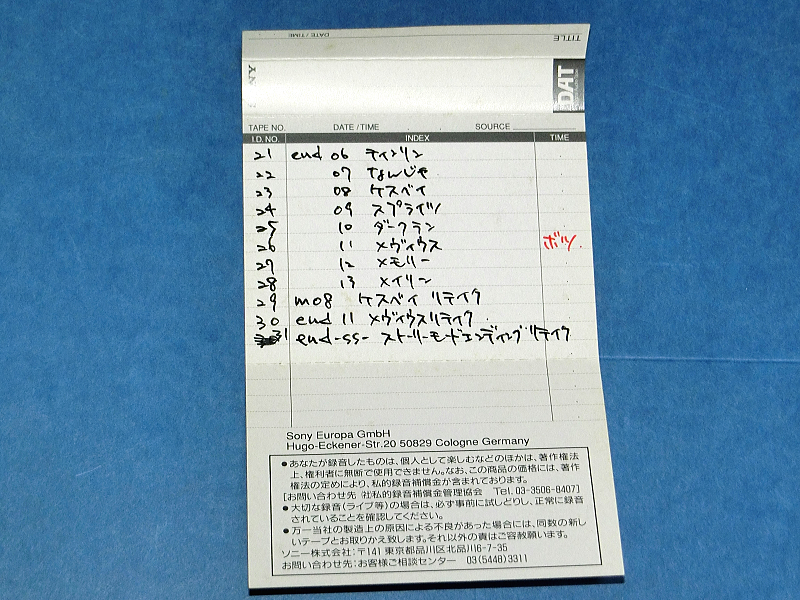 TITLE
DATE / TIME
SONY
DAT
TAPE NO. DATE / TIME SOURCE
I.D. NO. INDEX TIME
21 end 06 ティンリン
22 07 なんじゃ
23 08 ケスベイ
24 09 スプライツ
25 10 ダークラン
26 11 メヴィウス ボツ
27 12 メモリー
28 13 メイリン
29 m08 ケスベイ リテイク
30 end 11 メヴィウスリテイク
31 end-ss- ストーリーモードエンディングリテイク
Sony Europa GmbH
Hugo-Eckener-Str.20 50829 Cologne Germany
●あなたが録音したものは、個人として楽しむなどのほかは、著作権法
上、権利者に無断で使用できません。なお、この商品の価格には、著作
権法の定めにより、私的録音補償金が含まれております。
[お問い合わせ先 ㈳私的録音補償金管理協会 Tel. 03-3506-8407]
●大切な録音(ライブ等)の場合は、必ず事前に試しどりし、正常に録音
されていることを確認してください。
●万一当社の製造上の原因による不良があった場合には、同数の新し
いテープとお取りかえ致します。それ以外の責はご容赦願います。
ソニー株式会社:〒141 東京都品川区北品川6-7-35
お問い合わせ先:お客様ご相談センター 03(5448)3311